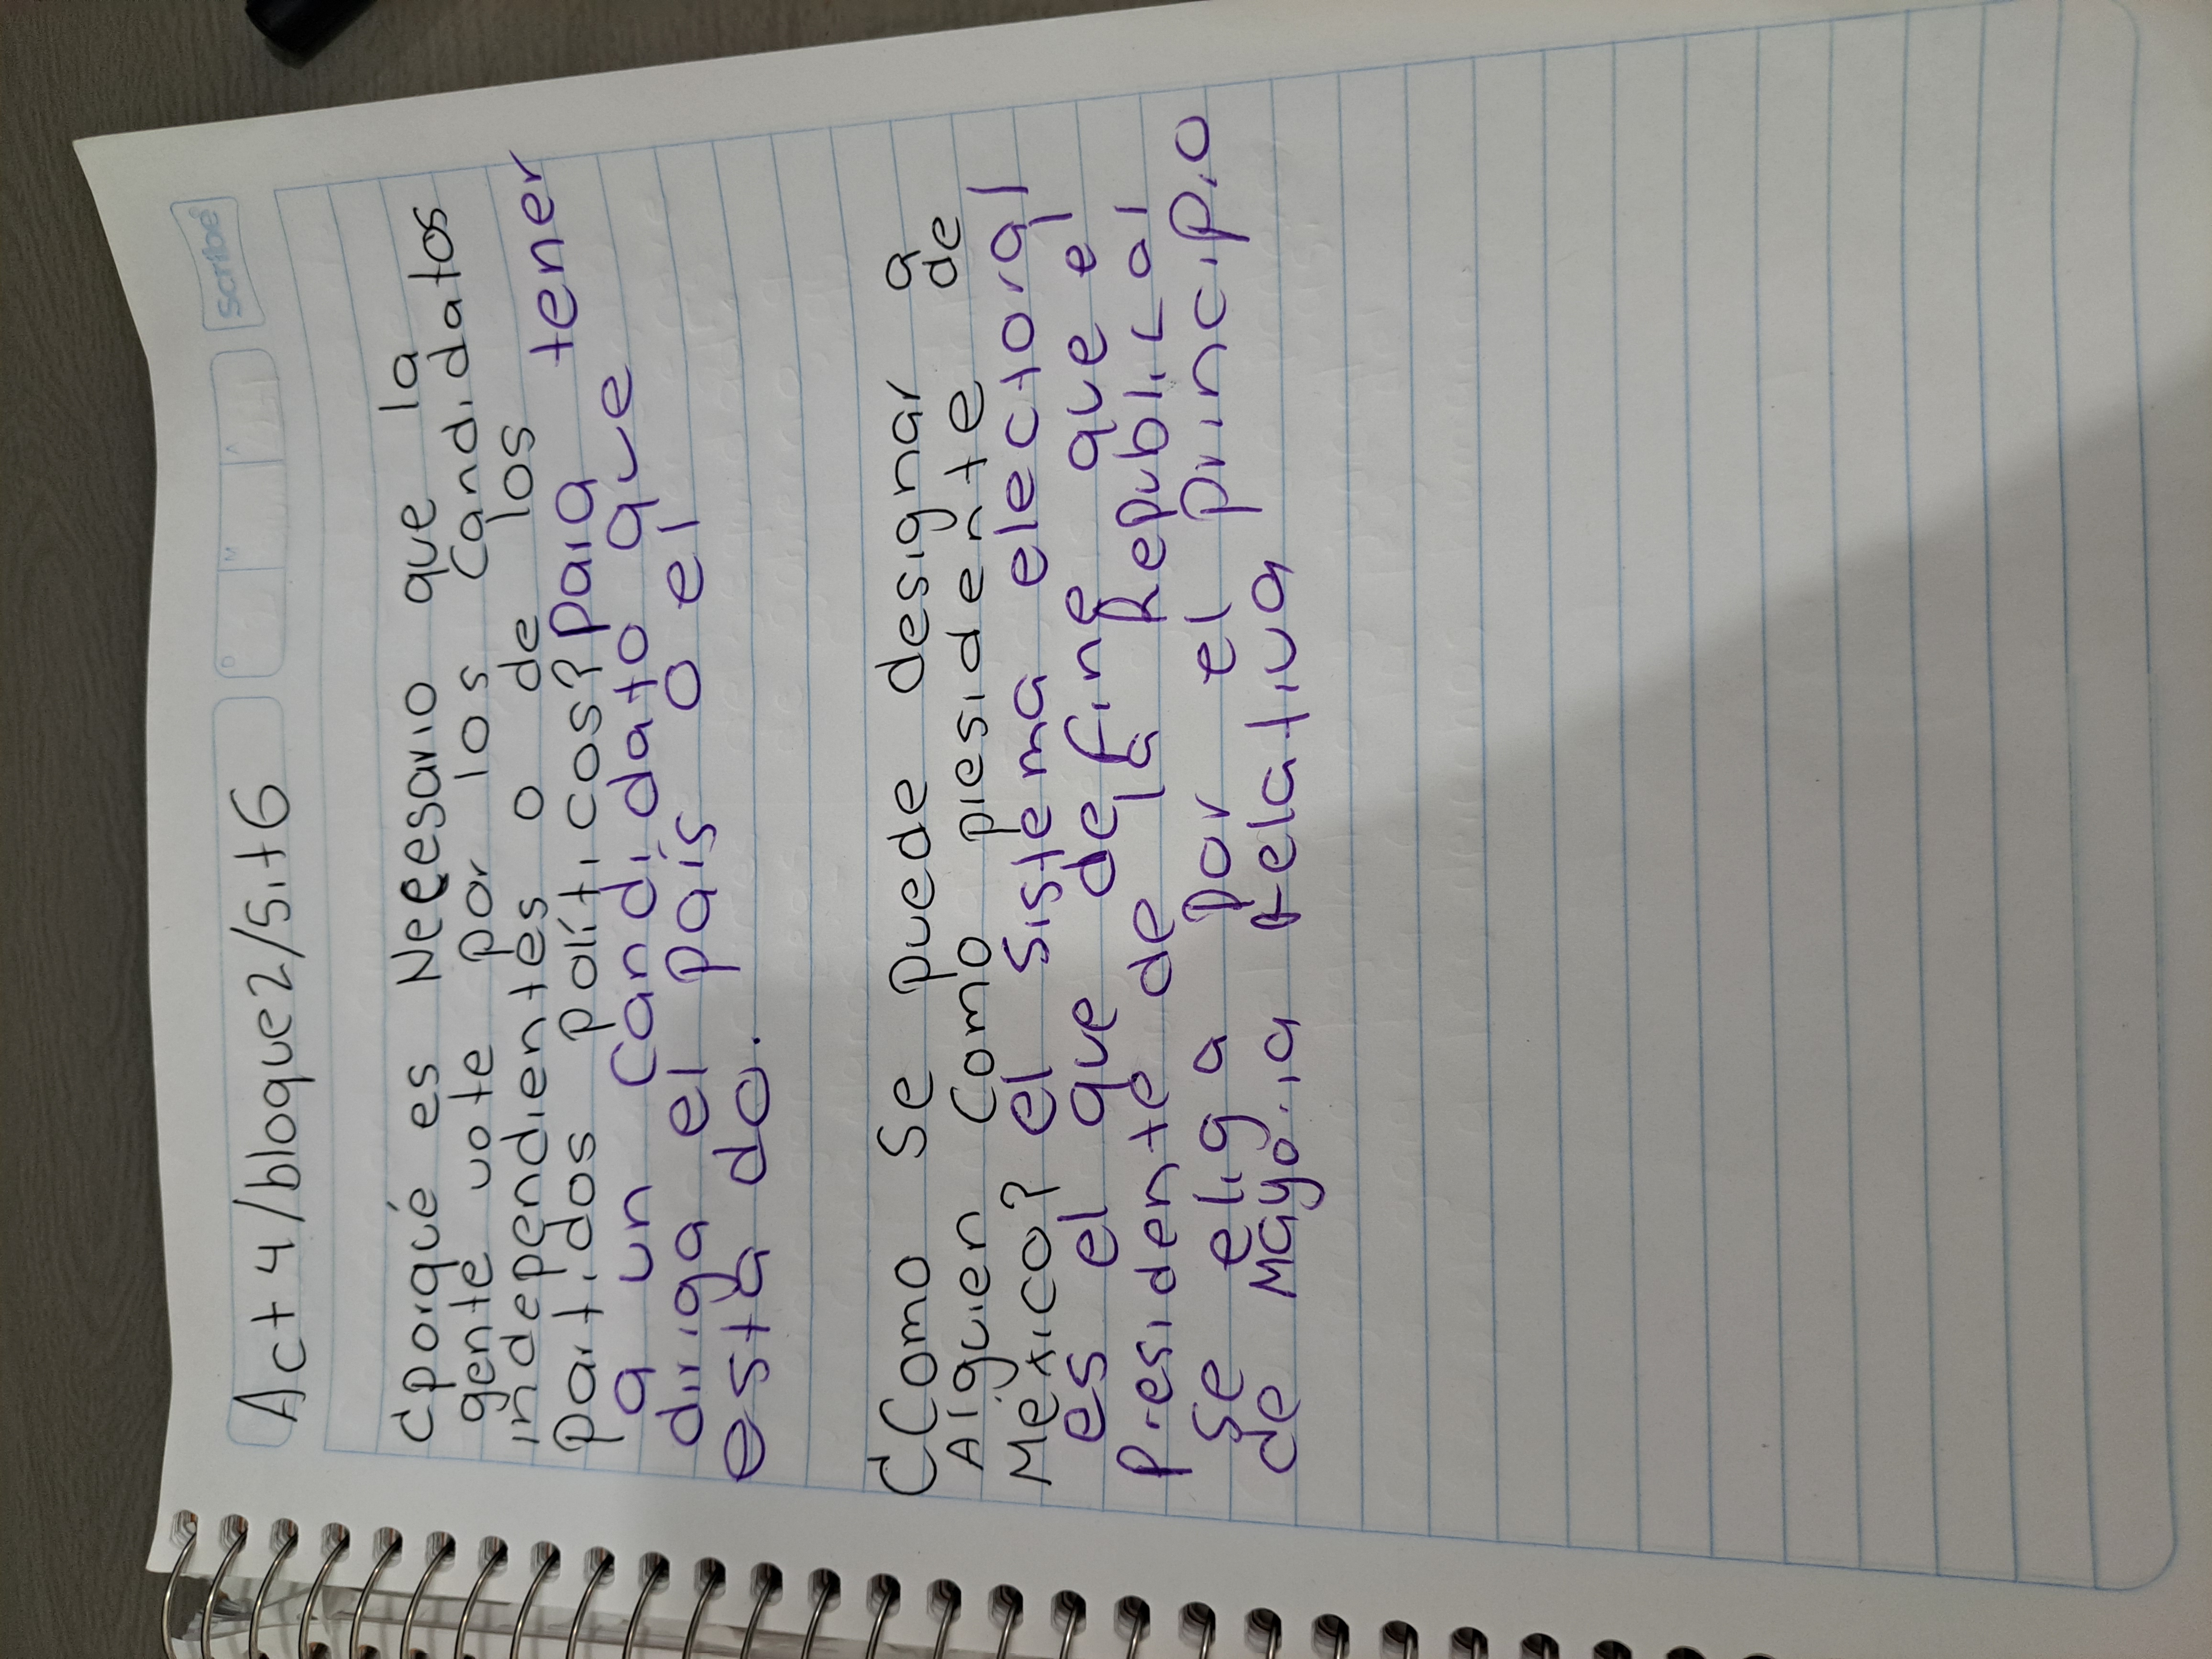 Act 4/bloque2/Sit6
scribe
D M A
¿porqué es Neecesario que la
gente vote por los candidatos
independientes o de los
partidos políticos? para tener
a un candidato que
diriga el país o el
estado.
¿Como Se puede designar a
Alguien como presidente de
México? el sistema electoral
es el que define que el
Presidente de la Republical
se elija por el principio
de Mayoria relativa